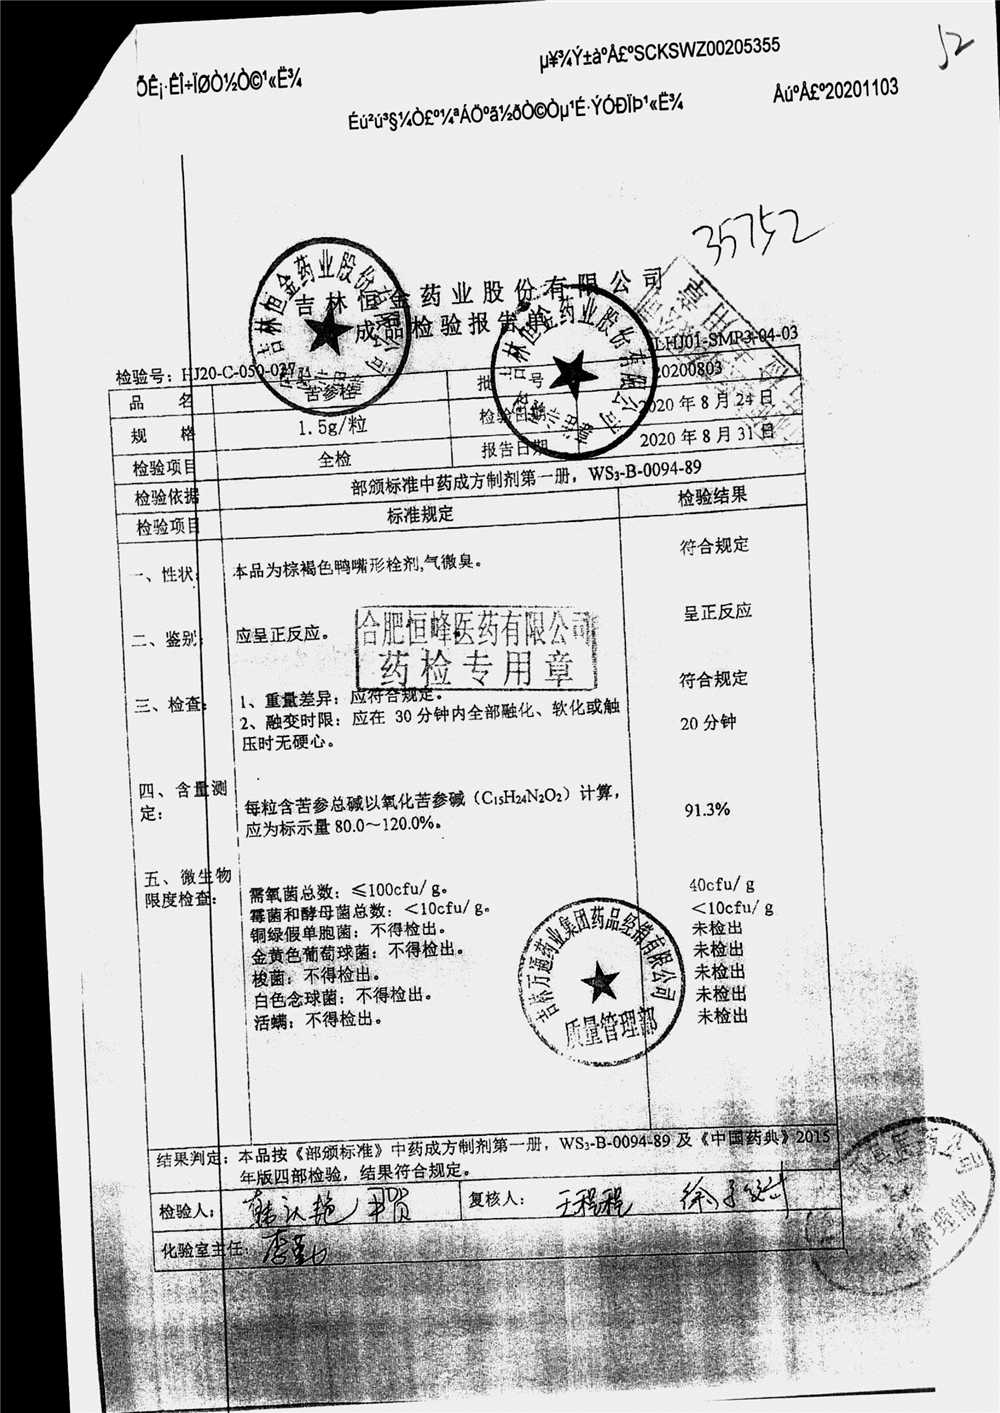 52
ÕÊ¡·ÊÎ÷ÏØÒ½Ò©¹«Ë¾
µ¥¾Ý±àºÅ£ºSCKSWZ00205355
Éú²ú³§¼Ò£º¼ªÁÖºã½ðÒ©Òµ¹É·ÝÓÐÏÞ¹«Ë¾
ÅúºÅ£º20201103
35752
吉林恒金药业股份有限公司
成品检验报告单
LHJ01-SMP3-04-03
检验号：HJ20-C-050-027
品 名 苦参栓 批 号 20200803
规 格 1.5g/粒 检验日期 2020 年 8 月 24 日
检验项目 全检 报告日期 2020 年 8 月 31 日
检验依据 部颁标准中药成方制剂第一册，WS₃-B-0094-89
检验项目 标准规定 检验结果
一、性状： 本品为棕褐色鸭嘴形栓剂,气微臭。 符合规定
二、鉴别： 应呈正反应。 呈正反应
合肥恒峰医药有限公司
药检专用章
三、检查： 1、重量差异：应符合规定。 符合规定
2、融变时限：应在 30 分钟内全部融化、软化或触 20 分钟
压时无硬心。
四、含量测
定： 每粒含苦参总碱以氧化苦参碱（C₁₅H₂₄N₂O₂）计算， 91.3%
应为标示量 80.0～120.0%。
五、微生物
限度检查： 需氧菌总数：≤100cfu/ g。 40cfu/ g
霉菌和酵母菌总数：<10cfu/ g。 <10cfu/ g
铜绿假单胞菌：不得检出。 未检出
金黄色葡萄球菌：不得检出。 未检出
梭菌：不得检出。 未检出
白色念球菌：不得检出。 未检出
活螨：不得检出。 未检出
吉林万通药业集团药品经销有限公司
质量管理部
结果判定：本品按《部颁标准》中药成方制剂第一册，WS₃-B-0094-89 及《中国药典》2015
年版四部检验，结果符合规定。
检验人： 复核人： 王程程
化验室主任：
吉林恒金药业股份有限公司
吉林恒金药业股份有限公司